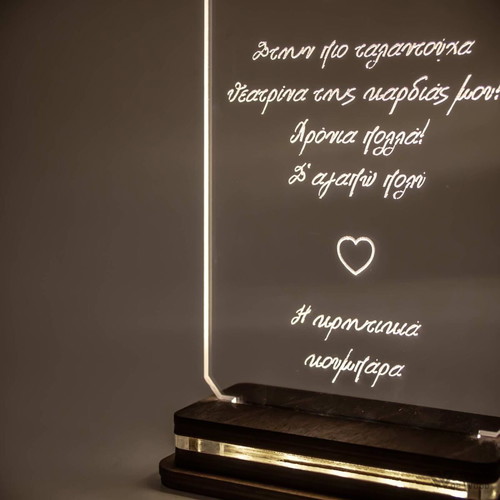 Στην πιο ταλαντούχα
θεατρίνα της καρδιάς μου!
Χρόνια πολλά!
Σ' αγαπώ πολύ
Η κρητικιά
κουμπάρα